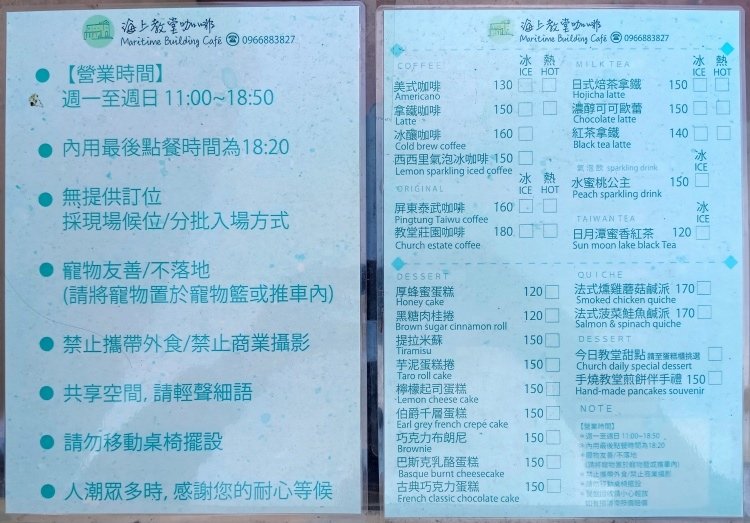 海上教堂咖啡
Maritime Building Café ☎ 0966883827
● 【營業時間】
週一至週日 11:00~18:50
● 內用最後點餐時間為18:20
● 無提供訂位
採現場候位/分批入場方式
● 寵物友善/不落地
(請將寵物置於寵物籃或推車內)
● 禁止攜帶外食/禁止商業攝影
● 共享空間, 請輕聲細語
● 請勿移動桌椅擺設
● 人潮眾多時, 感謝您的耐心等候
海上教堂咖啡
Maritime Building Café ☎ 0966883827
COFFEE 冰 ICE 熱 HOT
美式咖啡 130
Americano
拿鐵咖啡 150
Latte
冰釀咖啡 160
Cold brew coffee
西西里氣泡冰咖啡 150
Lemon sparkling iced coffee
ORIGINAL 冰 ICE 熱 HOT
屏東泰武咖啡 160
Pingtung Taiwu coffee
教堂莊園咖啡 180
Church estate coffee
MILK TEA 冰 ICE 熱 HOT
日式焙茶拿鐵 150
Hojicha latte
濃醇可可歐蕾 150
Chocolate latte
紅茶拿鐵 140
Black tea latte
氣泡飲 sparkling drink 冰 ICE
水蜜桃公主 150
Peach sparkling drink
TAIWAN TEA 冰 ICE
日月潭蜜香紅茶 120
Sun moon lake black Tea
DESSERT
厚蜂蜜蛋糕 120
Honey cake
黑糖肉桂捲 120
Brown sugar cinnamon roll
提拉米蘇 150
Tiramisu
芋泥蛋糕捲 150
Taro roll cake
檸檬起司蛋糕 150
Lemon cheese cake
伯爵千層蛋糕 150
Earl grey french crepe cake
巧克力布朗尼 150
Brownie
巴斯克乳酪蛋糕 150
Basque burnt cheesecake
古典巧克力蛋糕 150
French classic chocolate cake
QUICHE
法式燻雞蘑菇鹹派 170
Smoked chicken quiche
法式菠菜鮭魚鹹派 170
Salmon & spinach quiche
DESSERT
今日教堂甜點 請至蛋糕櫃挑選
Church daily special dessert
手燒教堂煎餅伴手禮 150
Hand-made pancakes souvenir
NOTE
【營業時間】
＊週一至週日 11:00~18:50
＊內用最後點餐時間為18:20
＊寵物友善/不落地
(請將寵物置於寵物籃或推車內)
＊禁止攜帶外食/禁止商業攝影
＊請勿移動桌椅擺設